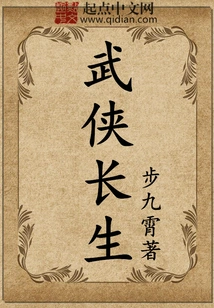 起点中文网
www.qidian.com
武侠长生
步九霄著